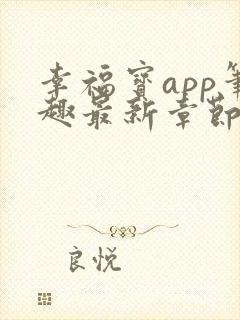 幸福宝app笔
趣最新章节
良悦